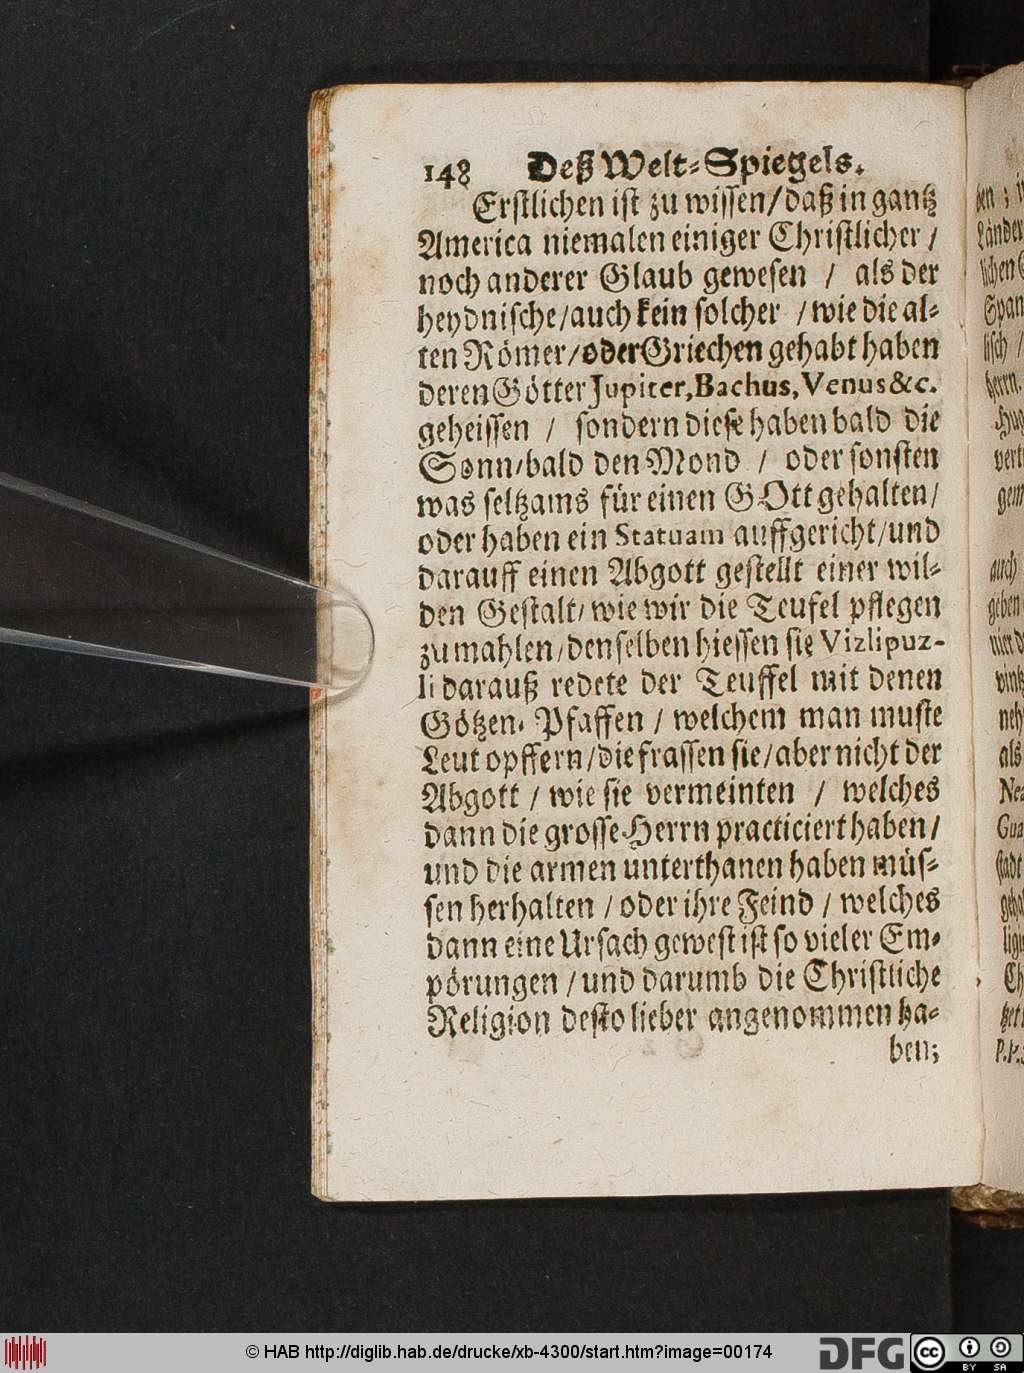 148 Deß Welt-Spiegels.
Erstlichen ist zu wissen/daß in gantz
America niemalen einiger Christlicher /
noch anderer Glaub gewesen / als der
heydnische/auch kein solcher / wie die al-
ten Römer/oder Griechen gehabt haben
deren Götter Jupiter,Bachus,Venus &c.
geheissen / sondern diese haben bald die
Sonn/bald den Mond / oder sonsten
was seltzams für einen GOtt gehalten/
oder haben ein Statuam auffgericht/und
darauff einen Abgott gestellt einer wil-
den Gestalt/ wie wir die Teufel pflegen
zu mahlen/denselben hiessen sie Vizlipuz-
li darauß redete der Teuffel mit denen
Götzen-Pfaffen / welchem man muste
Leut opffern/die frassen sie/aber nicht der
Abgott / wie sie vermeinten / welches
dann die grosse Herrn practiciert haben/
und die armen unterthanen haben müs-
sen herhalten / oder ihre Feind / welches
dann eine Ursach gewest ist so vieler Em-
pörungen / und darumb die Christliche
Religion desto lieber angenommen ha-
ben;
© HAB http://diglib.hab.de/drucke/xb-4300/start.htm?image=00174
DFG
cc BY SA